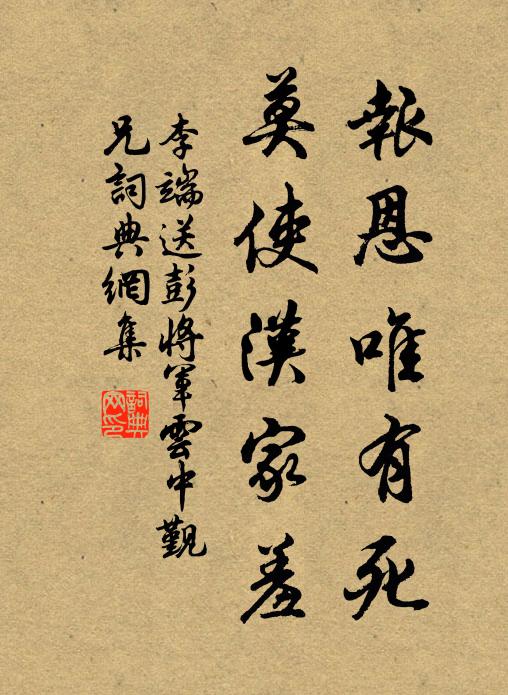 報恩唯有死
莫使漢家羞
李端送彭將軍雲中觀
兄詞典網集
詞典
網印